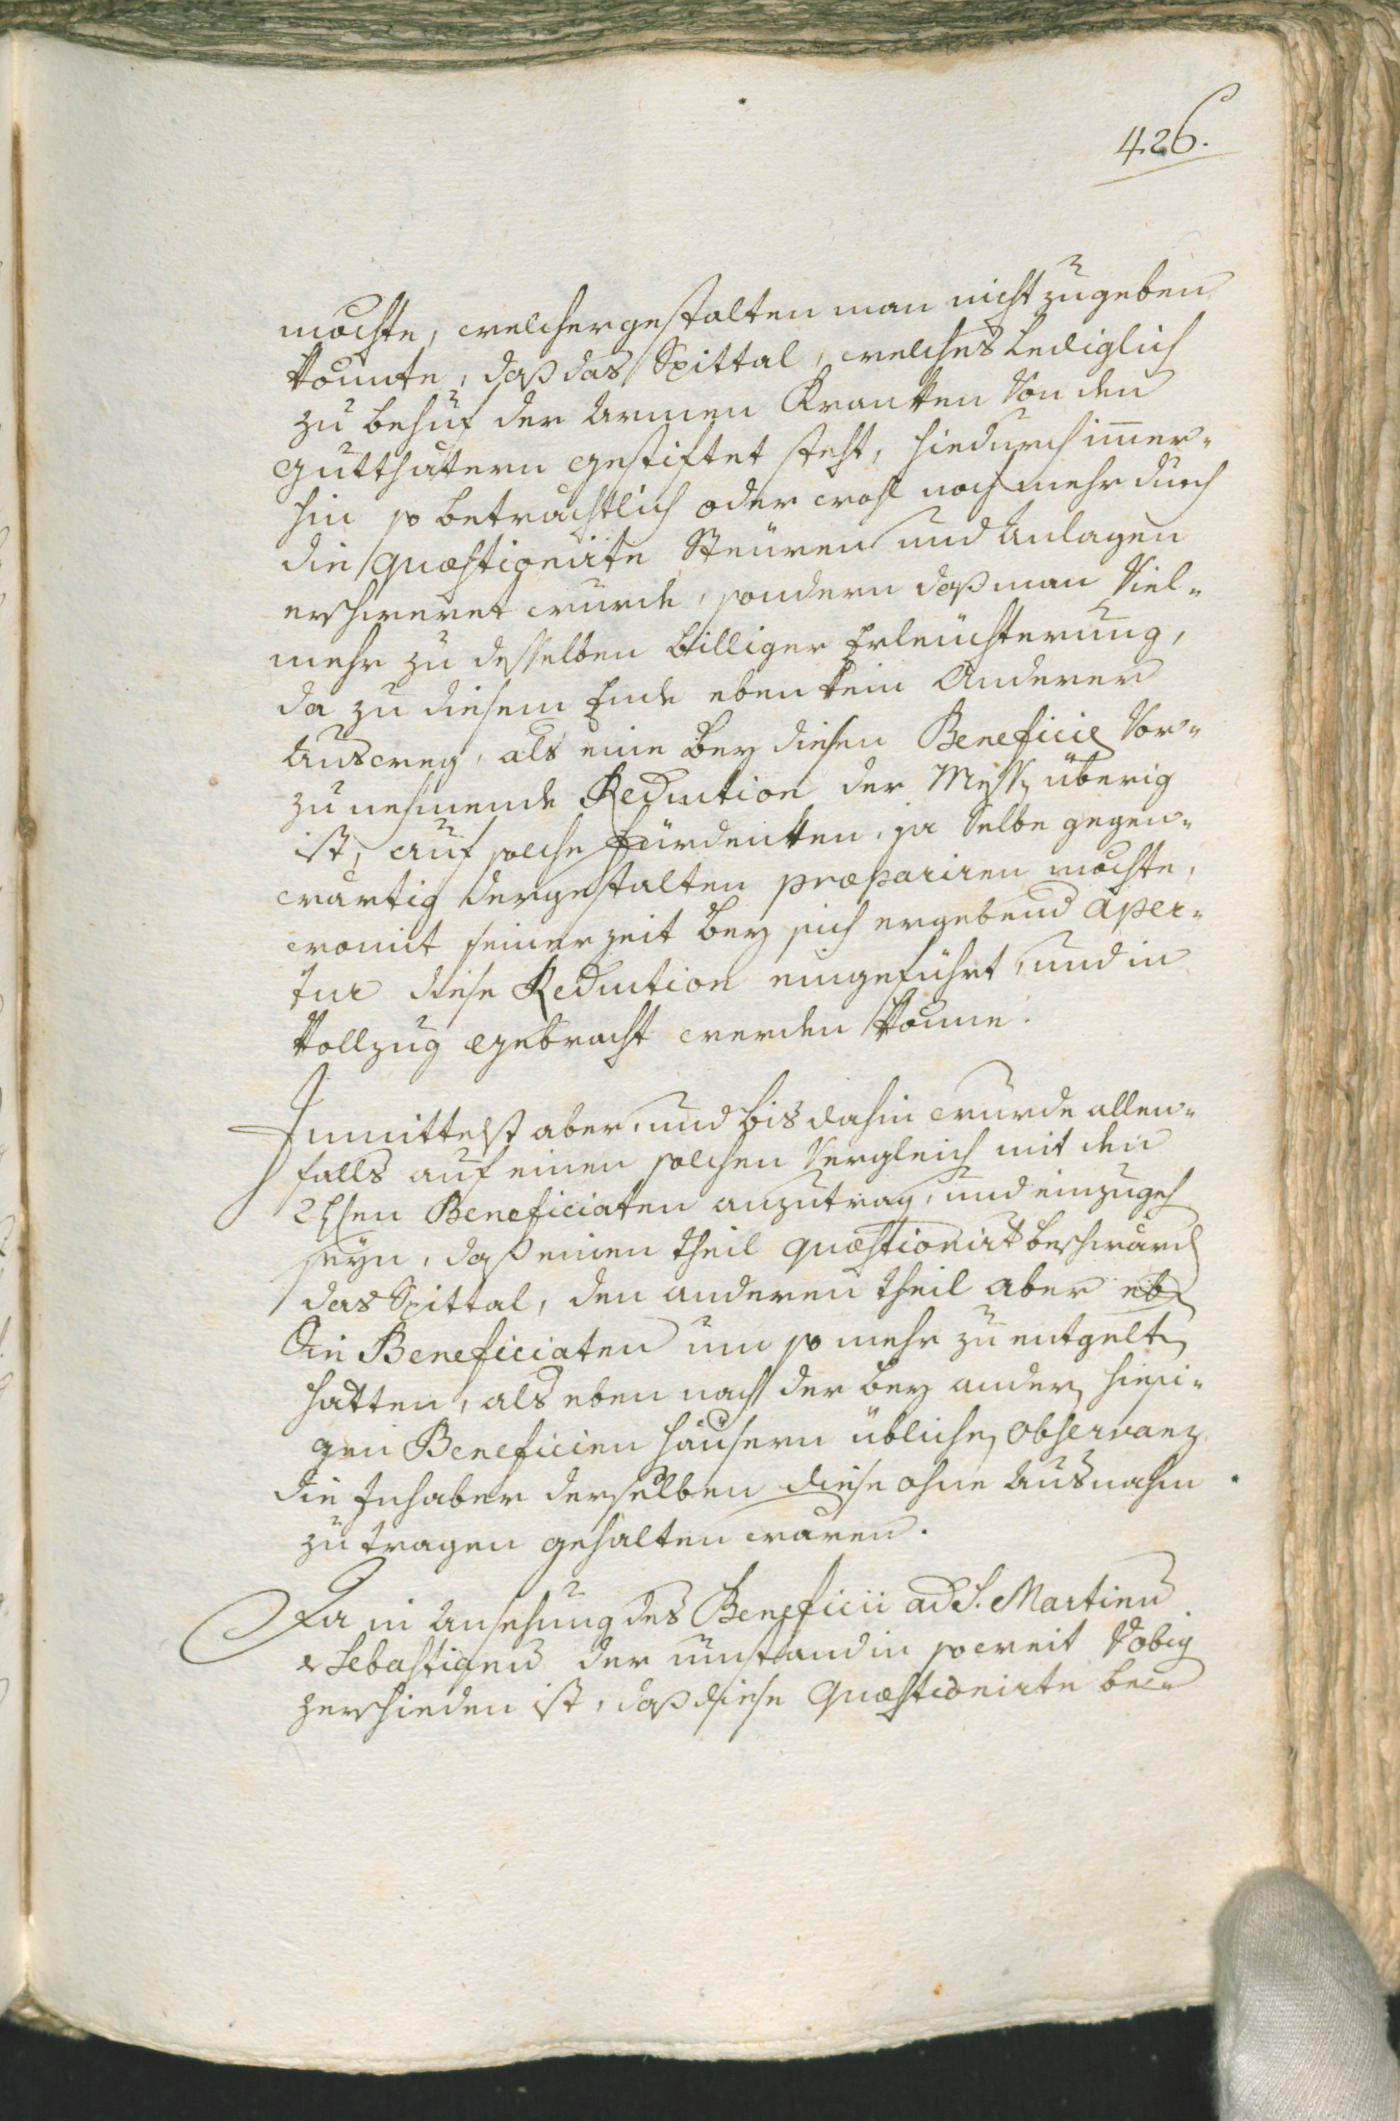 426.
möchte, welchergestalten man nicht zugeben
könnte, daß das Spittal, welches lediglich
zu behuf der Armen Krankken von den
Gutthätern gestiftet steht, hiedurch immer-
hin so beträchtlich oder wohl noch mehr durch
die quæstionirte Steüren und Anlagen
erschweret wurde, sondern daß man Viel-
mehr zu desselben billiger Erleuchterung,
da zu diesem Ende eben kein Anderer
Ausweeg, als eine bey diesen Beneficie Vor-
zu nehmende Reduction der Mess überig
ist, auf solche fürdenkken, ja Selbe gegen-
wärtig dergestalten præpariren möchte,
womit seiner zeit bey sich ergebend Aper-
tur diese Reduction eingeführt, und in
Vollzug gebracht werden könne.
Inmittelst aber, und bis dahin wurde allen-
falls auf einen solchen Vergleich mit den
Beneficiaten anzutrag, und einzugeh
seyn, daß einen theil quæstionirt beschwärd
das Spittal, den anderen theil aber eb
Die Beneficiaten um so mehr zu entgelt
hätten, als eben nach der bey ander hiesi-
gen Beneficien häusern üblichen observanz
die Inhaber derselben diese ohne Ausnahm
zu tragen gehalten wären.
Da in Ansehung des Beneficii ad S. Martinū
& Sebastianū der umstand in soweit Vobig
zerschieden ist, daß diese Quæstionirte be-